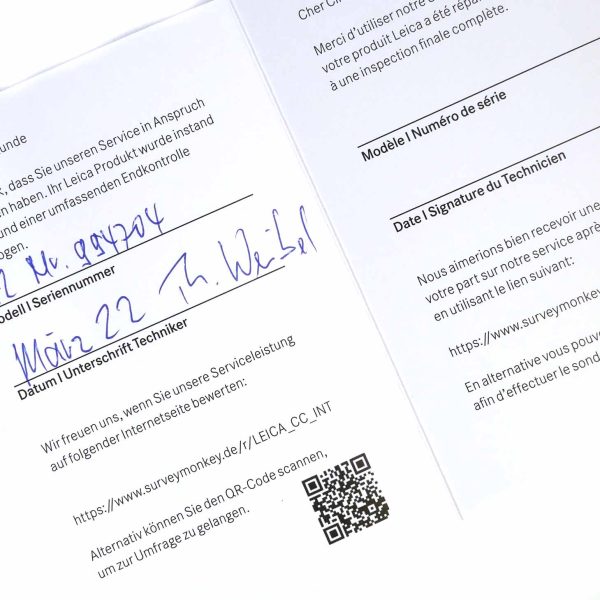 unde
, dass Sie unseren Service in Anspruch
n haben. Ihr Leica Produkt wurde instand
und einer umfassenden Endkontrolle
ogen.
2 Nr. 994704
odell I Seriennummer
März 22 Th. Weibel
Datum I Unterschrift Techniker
Wir freuen uns, wenn Sie unsere Serviceleistung
auf folgender Internetseite bewerten:
https://www.surveymonkey.de/r/LEICA_CC_INT
Alternativ können Sie den QR-Code scannen,
um zur Umfrage zu gelangen.
Cher Cli
Merci d'utiliser notre
votre produit Leica a été répa
à une inspection finale complète.
Modèle I Numéro de série
Date I Signature du Technicien
Nous aimerions bien recevoir une
votre part sur notre service aprè
en utilisant le lien suivant:
https://www.surveymonkey
En alternative vous pouv
afin d'effectuer le sond